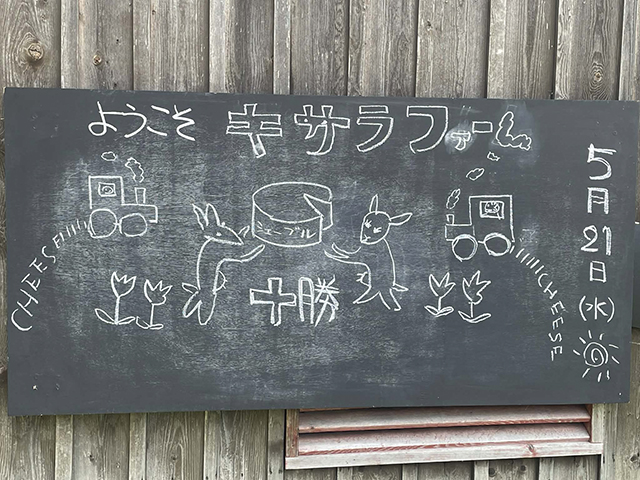 ようこそ キサラファーム
5月21日(水)
シェーブル
十勝
CHEESE
CHEESE